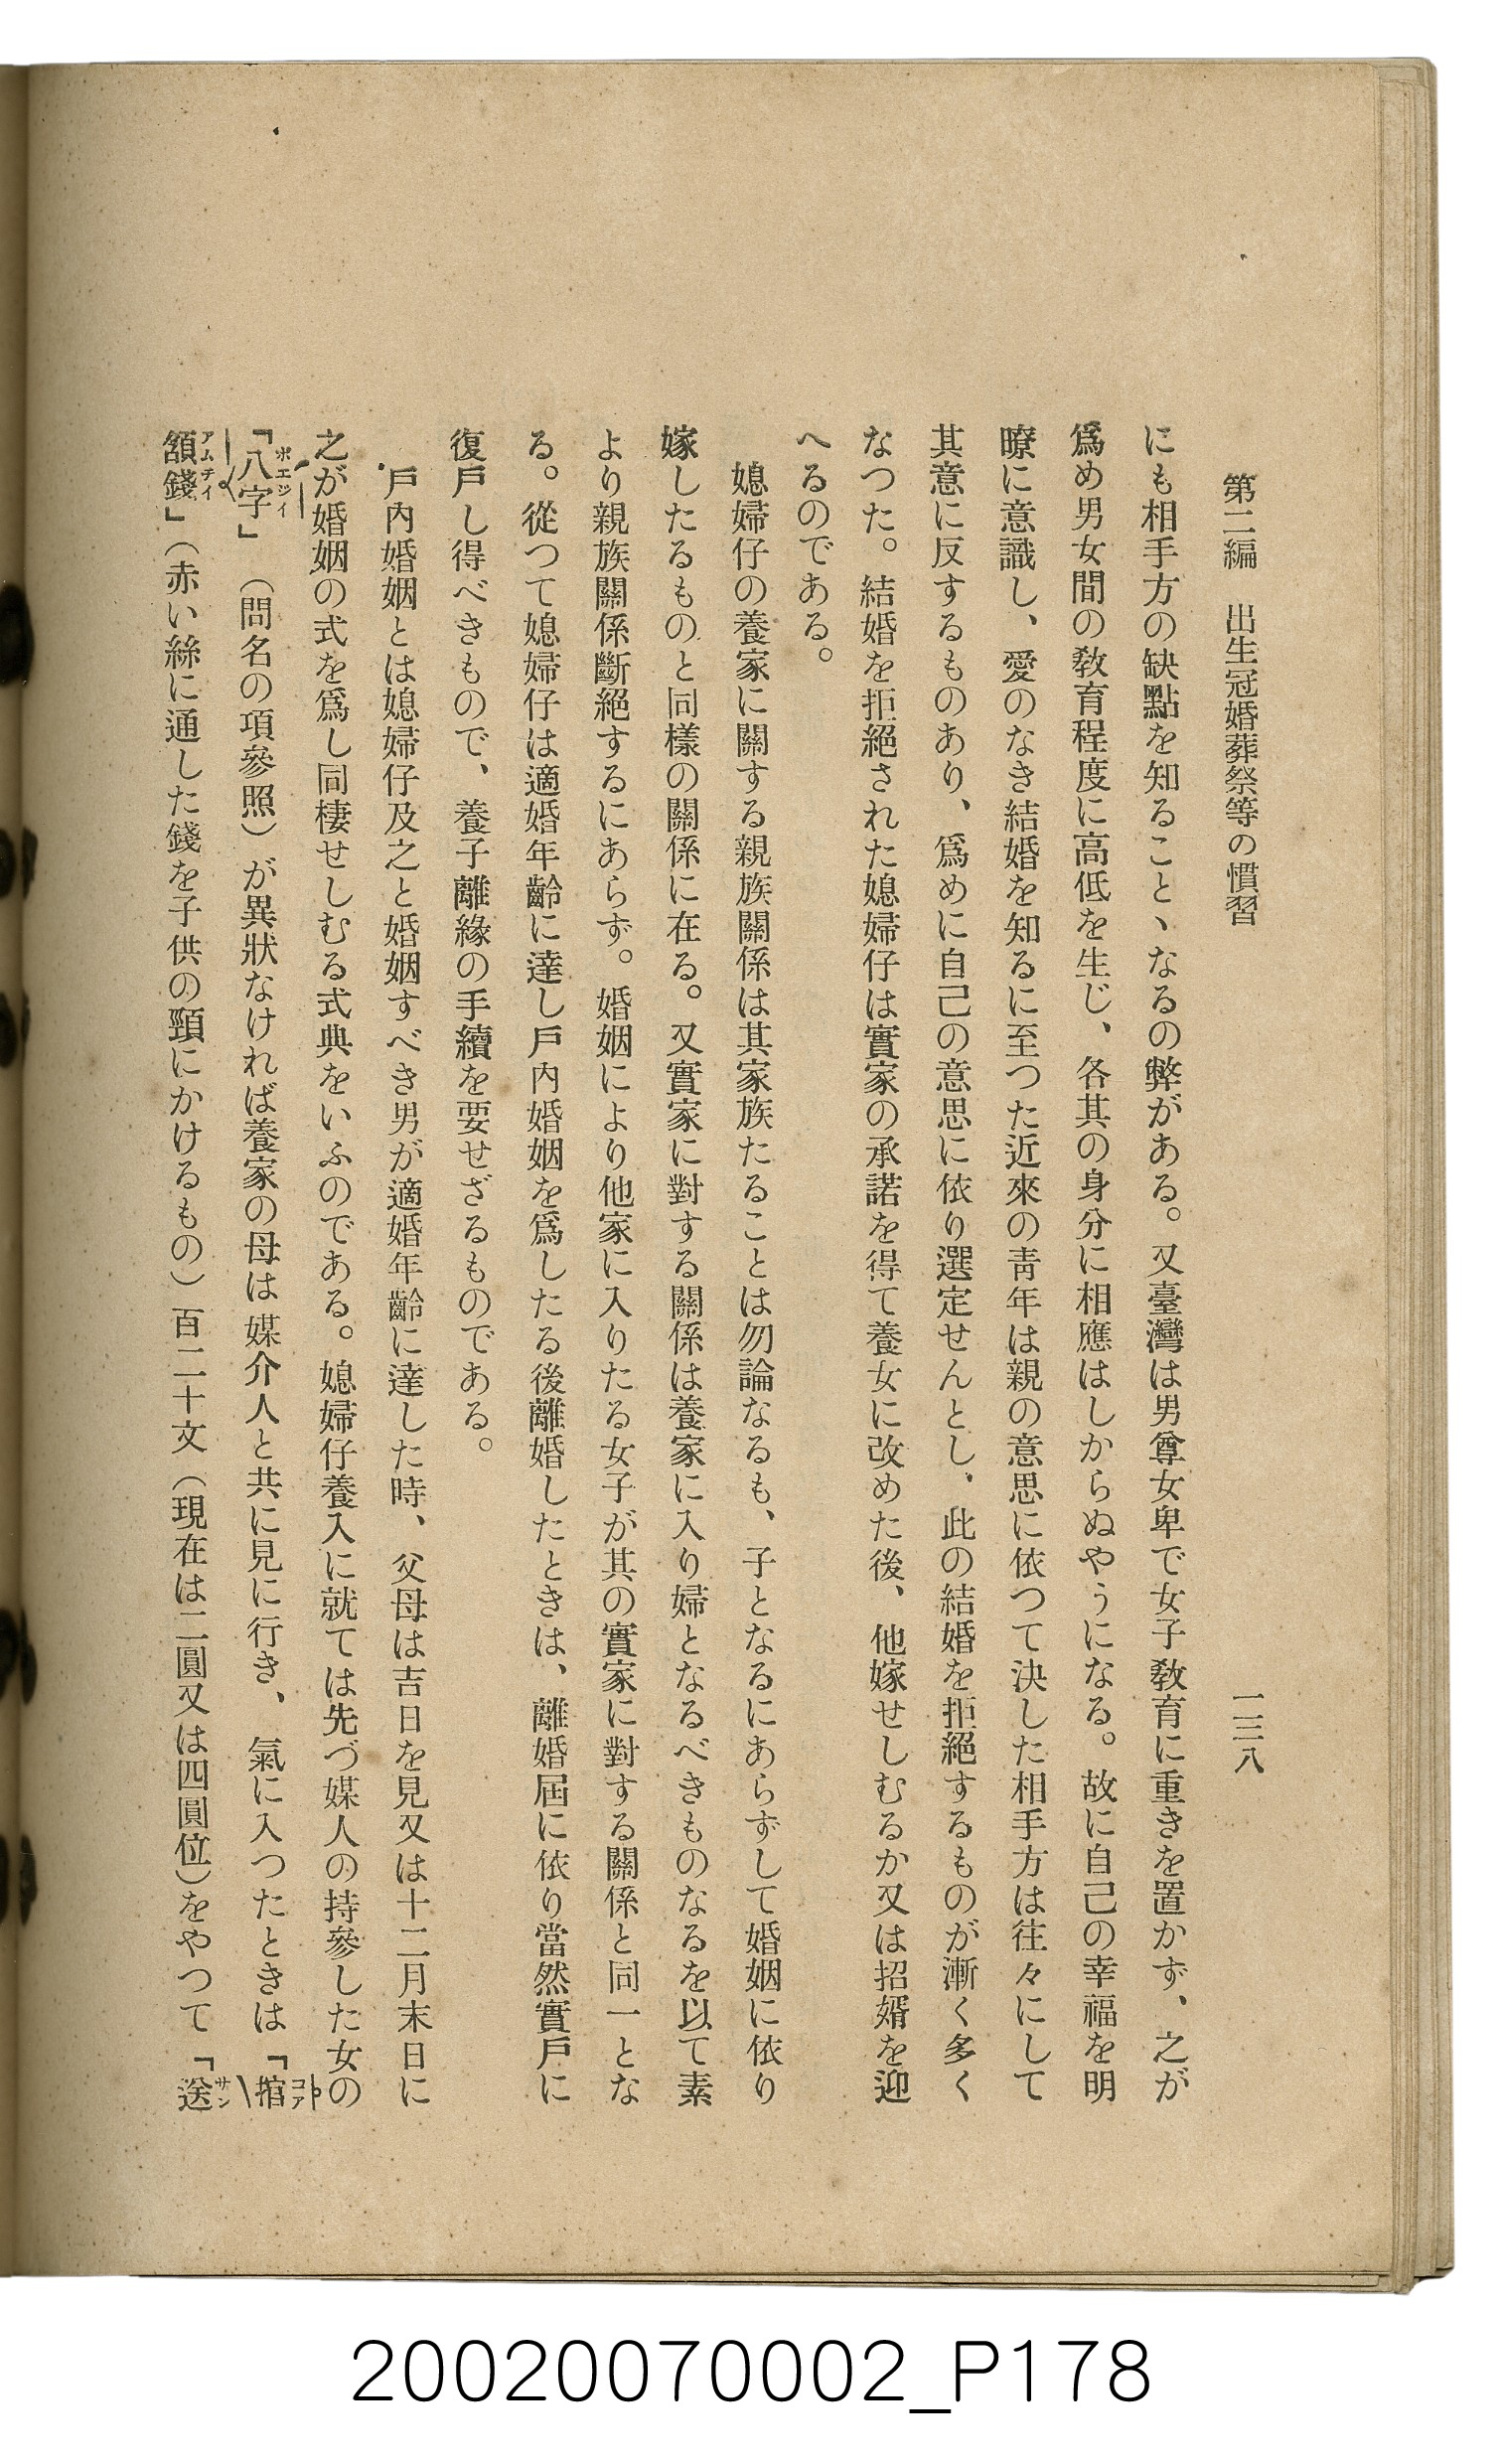 第二編　出生冠婚葬祭等の慣習　一三八
にも相手方の缺點を知ること丶なるの弊がある。又臺灣は男尊女卑で女子教育に重きを置かず、之が
爲め男女間の教育程度に高低を生じ、各其の身分に相應はしからぬやうになる。故に自己の幸福を明
瞭に意識し、愛のなき結婚を知るに至つた近來の靑年は親の意思に依つて決した相手方は往々にして
其意に反するものあり、爲めに自己の意思に依り選定せんとし、此の結婚を拒絕するものが漸く多く
なつた。結婚を拒絕された媳婦仔は實家の承諾を得て養女に改めた後、他嫁せしむるか又は招婿を迎
へるのである。
媳婦仔の養家に關する親族關係は其家族たることは勿論なるも、子となるにあらずして婚姻に依り
嫁したるものと同樣の關係に在る。又實家に對する關係は養家に入り婦となるべきものなるを以て素
より親族關係斷絕するにあらず。婚姻により他家に入りたる女子が其の實家に對する關係と同一とな
る。從つて媳婦仔は適婚年齡に達し戶內婚姻を爲したる後離婚したときは、離婚屆に依り當然實戶に
復戶し得べきもので、養子離緣の手續を要せざるものである。
戶內婚姻とは媳婦仔及之と婚姻すべき男が適婚年齡に達した時、父母は吉日を見又は十二月末日に
之が婚姻の式を爲し同棲せしむる式典をいふのである。媳婦仔養入に就ては先づ媒人の持參した女の
「八字」（問名の項參照）が異狀なければ養家の母は媒介人と共に見に行き、氣に入つたときは「捾
頷錢」（赤い絲に通した錢を子供の頸にかけるもの）百二十文（現在は二圓又は四圓位）をやつて「送
20020070002_P178